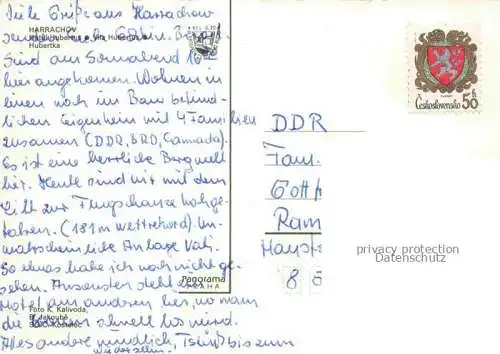 Liebe Grüße aus Harrachow
HARRACHOV
Hubertka
Sind am Sonnabend 16
hier angekommen. Wohnen in
einem noch im Bau befind-
lichen Eigenheim mit 4 Familien
zusammen (DDR, BRD, Cannada).
Es ist eine herrliche Bergwelt
hier. Heute sind wir mit dem
Lift zur Flugschanze hochge-
fahren. (181 m Weltrekord). Un-
wahrscheinliche Anlage
So etwas habe ich noch nicht ge-
sehen. Ansonsten steht ein
Hotel am anderen hier, wo man
die schnell los wird.
Alles andere mündlich, Tschüß bis zum
wiedersehn.
Foto K. Kalivoda,
B. Jakoubě
S. O. Kostelec
Panorama
PRAHA
Československo 50 h
DDR
Fam.
Gott
Ram
Haupts
8
privacy protection
Datenschutz